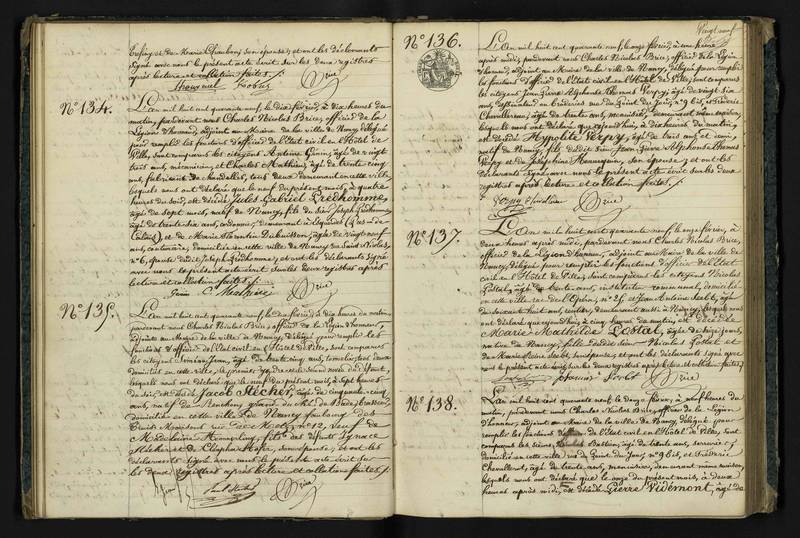 Vingt neuf
épouse; et ont les déclarants
signé avec nous le présent acte écrit sur les deux registres
après lecture et collation faites./.
Brice
N° 134.
L'an mil huit cent quarante neuf, le dix février, à dix heures du
matin, pardevant nous Charles Nicolas Brice, officier de la
Légion d'honneur, adjoint au Maire de la ville de Nancy, délégué
pour remplir les fonctions d'officier de l'Etat civil en l'Hôtel de
Ville, sont comparus les citoyens Antoine Génin, âgé de vingt
trois ans, mécanicien, et Charles Mathieu, âgé de trente cinq
ans, fabricant de chandelles, tous deux demeurant en cette ville,
lesquels nous ont déclaré que le neuf du présent mois, à quatre
heures du soir, est décédé Jules Gabriel Predhomme,
âgé de sept mois, natif de Nancy, fils de Joseph Prédhomme,
âgé de trente six ans, demeurant à
Calais), et de Marie âgée de vingt neuf
ans, couturière, domiciliée en cette ville de Nancy rue Saint Nicolas,
n° 6, épouse dudit Joseph Prédhomme; et ont les déclarants signé
avec nous le présent acte écrit sur les deux registres après
lecture et collation faites./.
Génin C. Mathieu Brice
N° 135.
L'an mil huit cent quarante neuf, le dix février, à dix heures du matin,
pardevant nous Charles Nicolas Brice, officier de la Légion d'honneur,
adjoint au Maire de la ville de Nancy, délégué pour remplir les
fonctions d'officier de l'Etat civil en l'Hôtel de Ville, sont comparus
les citoyens âgé de trente cinq ans, tous deux
domiciliés en cette ville, le premier gendre et le second du défunt,
lesquels nous ont déclaré que le neuf du présent mois, à sept heures
du soir, est décédé Jacob Stecher, âgé de cinquante-cinq
ans, natif de grand duché de Bade, brasseur,
domicilié en cette ville de Nancy faubourg des
Trois Maisons rue de Metz, n° 12, veuf de
Madelaine fils des défunts Ignace
Stecher et de son épouse; et ont les
déclarants signé avec nous le présent acte écrit sur
les deux registres après lecture et collation faites./.
Brice
N° 136.
L'an mil huit cent quarante neuf, le onze février, à une heure
après midi, pardevant nous Charles Nicolas Brice, officier de la Légion
d'honneur, adjoint au Maire de la ville de Nancy, délégué pour remplir
les fonctions d'officier de l'Etat civil en l'Hôtel de Ville, sont comparus
les citoyens Jean Pierre Alphonse Thomas Verpy, âgé de vingt six
ans, rue du Point du Jour, n° 9 bis, et Frédéric
Chevallereau, âgé de trente ans, menuisier, demeurant même maison,
lesquels nous ont déclaré que cejourd'hui, à dix heures du matin,
est décédé Hypolite Verpy, âgé de trois ans et demi,
natif de Nancy, fils dudit Jean Pierre Alphonse Thomas
Verpy et de Joséphine son épouse; et ont les
déclarants signé avec nous le présent acte écrit sur les deux
registres après lecture et collation faites./.
Verpy Brice
N° 137.
L'an mil huit cent quarante neuf, le onze février, à
deux heures après midi, pardevant nous Charles Nicolas Brice,
officier de la Légion d'honneur, adjoint au Maire de la ville de
Nancy, délégué pour remplir les fonctions d'officier de l'Etat
civil en l'Hôtel de Ville, sont comparus les citoyens Nicolas
Postal, âgé de trente ans, instituteur communal, domicilié
en cette ville rue de l'Opéra, n° 25, et Jean Antoine âgé
de soixante huit ans, rentier, demeurant aussi à Nancy, lesquels nous
ont déclaré que cejourd'hui, à cinq heures du matin, est décédée
Marie Mathilde Postal, âgée de
native de Nancy, fille dudit Nicolas Postal et
de Marie son épouse; et ont les déclarants signé avec
nous le présent acte écrit sur les deux registres après lecture et collation faites./.
Brice
N° 138.
L'an mil huit cent quarante neuf, le douze février, à neuf heures du
matin, pardevant nous Charles Nicolas Brice, officier de la Légion
d'honneur, adjoint au Maire de la ville de Nancy, délégué pour
remplir les fonctions d'officier de l'Etat civil en l'Hôtel de Ville, sont
comparus les citoyens Bastien, âgé de trente ans,
domicilié en cette ville rue du Point du Jour, n° 9 bis, et Frédéric
Chevallereau, âgé de trente ans, menuisier, demeurant même maison,
lesquels nous ont déclaré que le onze du présent mois, à deux
heures après midi, est décédé Pierre Videmont, âgé de